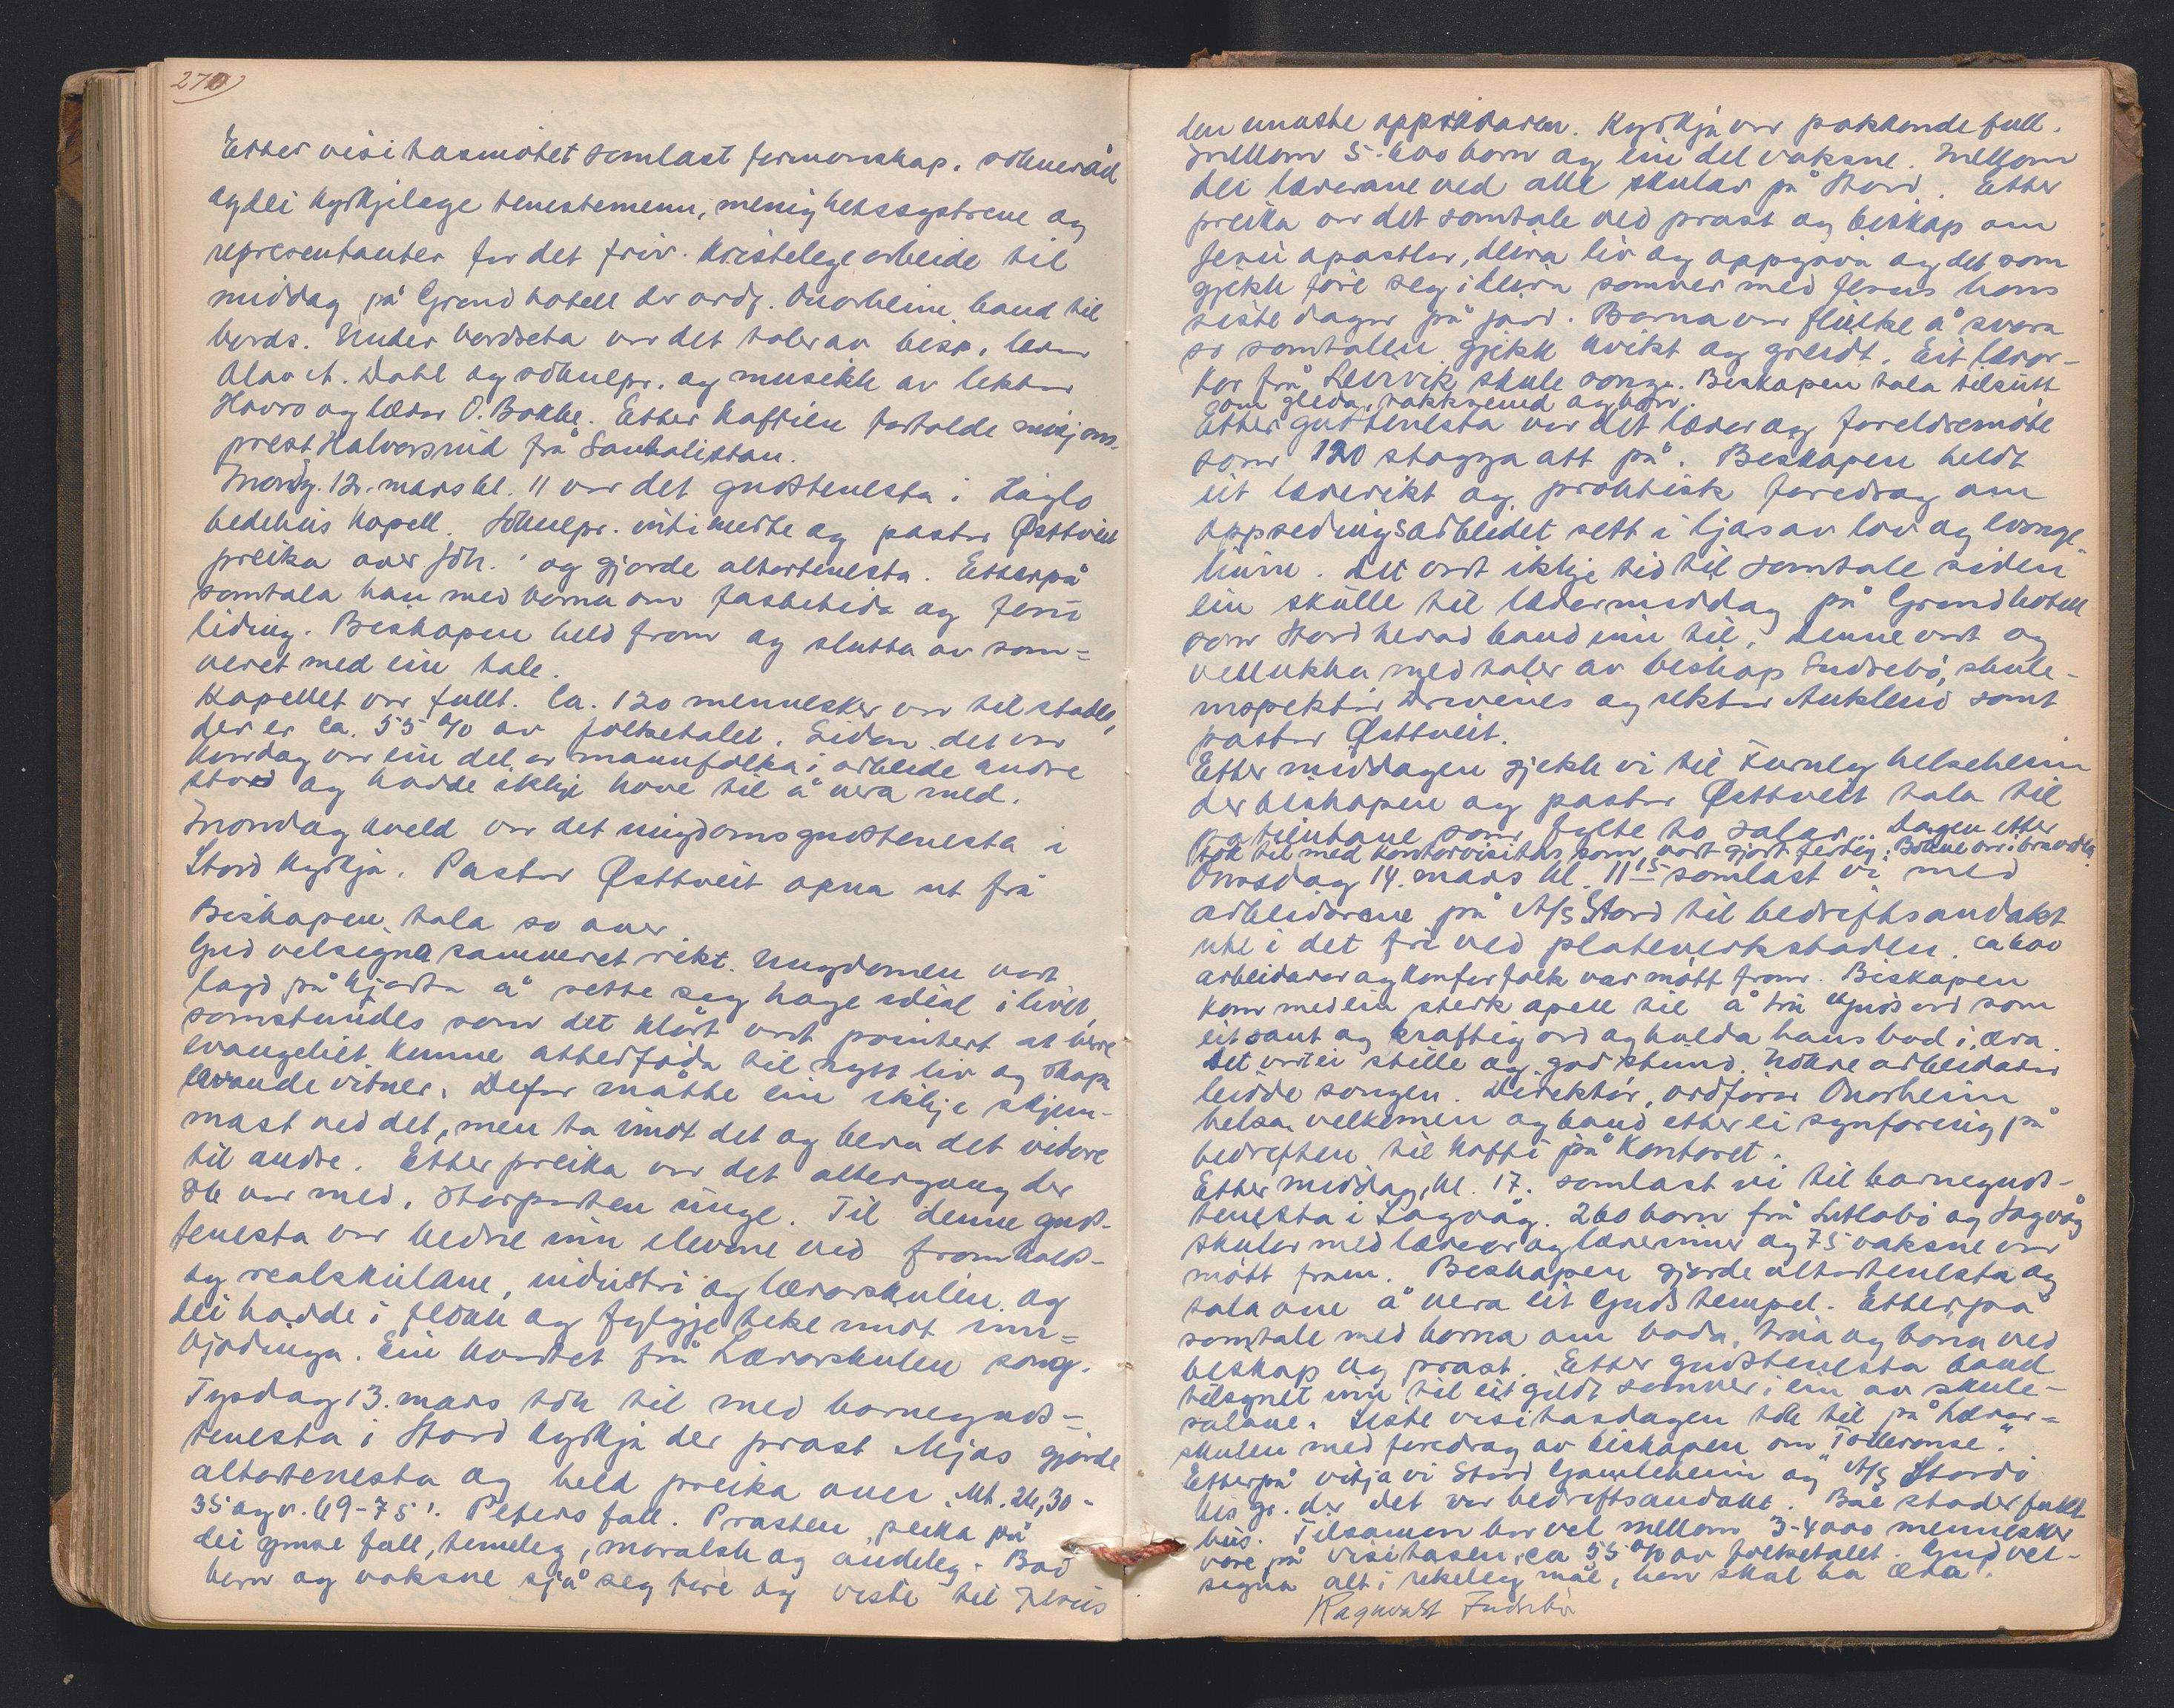 270
Etter visitasmøtet samlast formanskap, sokneråd
og dei kyrkjelege tenestemenn, menighetssystrene og
representanter for det friv. kristelege arbeide til
middag på Grand hotell der ordf. Onarheim baud til
bords. Under bordseta var det taler av bisp, lærar
Olav A. Dahl og soknepr. og musikk av lektor
Hovro og lærar O. Bakke. Etter kaffien fortalde misjons-
prest Halvorsrud frå Santalistan.
Mondg. 12. mars kl. 11 var det gudstenesta i Huglo
bedehus kapell. Soknepr. intimerte og pastor Østtveit
preika over Joh. og gjorde altartenesta. Etterpå
samtala han med borna om fastetida og Jesu
liding. Biskopen held fram og slutta av sam=
veret med ein tale.
Kapellet var fullt. Ca. 120 mennesker var til stades,
der er ca. 55 % av folketalet. Sidan det var
kvardag var ein del av mannfolka i arbeide andre
stad og hadde ikkje høve til å vera med.
Mondag kveld var det ungdomsgudstenesta i
Stord kyrkja. Pastor Østtveit opna ut frå
Biskopen tala so over
Gud velsigna samveret rikt. Ungdomen vart
lagd på hjarta å sette seg høge ideal i livet,
samstundes som det klårt vart pointert at berre
evangeliet kunne atterføda til nytt liv og skapa
levande vitner. Defor måtte ein ikkje skjem-
mast ved det, men ta imot det og bera det vidare
til andre. Etter preika var det altergang der
86 var med, storparten unge. Til denne guds-
tenesta var bedne inn elevane ved framhalds-
og realskulane, industri og lærarskulen og
dei hadde i flokk og fylgje teke imot inn=
bjodinga. Ein kvartet frå Lærarskulen song.
Tysdag 13. mars tok til med barneguds=
tenesta i Stord kyrkja der prost Mjøs gjorde
altartenesta og held preika over Mt. 26,30-
35 og v. 69-75: Peters fall. Prosten peika på
dei ymse fall, timeleg, moralsk og åndeleg. Bad
born og vaksne sjå seg føre og viste til Jesus
den einaste oppreisaren. Kyrkja var pakkande full.
Mellom 5-600 born og ein del vaksne. Mellom
dei lærarane ved alle skular på Stord. Etter
preika var det samtale ved prost og biskop om
Jesu apostlar, deira liv og oppgåva og det som
gjekk føre seg i deira samver med Jesus hans
siste dagar på jord. Borna var flinke å svara
so samtalen gjekk kvikt og greidt. Eit lærar-
kor frå Leirvik skule song. Biskopen tala tilslutt
om gleda, takksemd og bøn.
Etter gudstenesta var det lærar og foreldremøte
som 120 stogga att på. Biskopen heldt
eit lærerikt og praktisk foredrag om
oppsedingsarbeidet sett i ljos av lov og evange-
lium. Det vart ikkje tid til samtale sidan
ein skulle til lærarmiddag på Grand hotell
som Stord herad baud inn til. Denne vart og
vellukka med taler av biskop Indrebø, skule-
inspektør Drivenes og rektor Aukland samt
pastor Østtveit.
Etter middagen gjekk vi til Furuly helseheim
der biskopen og pastor Østtveit tala til
patientane som fylte to salar. Dagen etter
tok til med kontorvisitas som vart gjort ferdig. Bøkene var i bra orden.
Onsdag 14. mars kl. 11 15 samlast vi med
arbeidarane på A/S Stord til bedriftsandakt
ute i det fri ved plateverkstaden. ca 600
arbeidarar og kontorfolk var møtt fram. Biskopen
kom med ein sterk apell til å tru Guds ord som
eit sant og kraftig ord og halda hans bod i æra.
Det vart ei stille og god stund. Nokre arbeidarar
leidde songen. Direktør, ordførar Onarheim
helsa velkomen og baud etter ei synfaring på
bedriften til kaffi på kontoret.
Etter middag, kl. 17. samlast vi til barneguds-
tenesta i Sagvåg. 260 born frå Litlabø og Sagvåg
skular med lærarar og lærarinner og 75 vaksne var
møtt fram. Biskopen gjorde altartenesta og
tala om å vera eit Guds tempel. Etterpå
samtale med borna om boda, trua og bøna ved
biskop og prost. Etter gudstenesta baud
tilsynet inn til eit gildt samver i ein av skule-
salane. Siste visitasdagen tok til på Lærar=
skulen med foredrag av biskopen om "Tolleranse".
Etterpå vitja vi Stord Gamleheim og A/S Stordø
kis gr. der det var bedriftsandakt. Båe stader fullt
hus. Tilsaman har vel mellom 3-4000 mennesker
vore på visitasen, ca 55 % av folketalet. Gud vel-
signa alt i rikeleg mål, han skal ha æra.
Ragnvald Indrebø